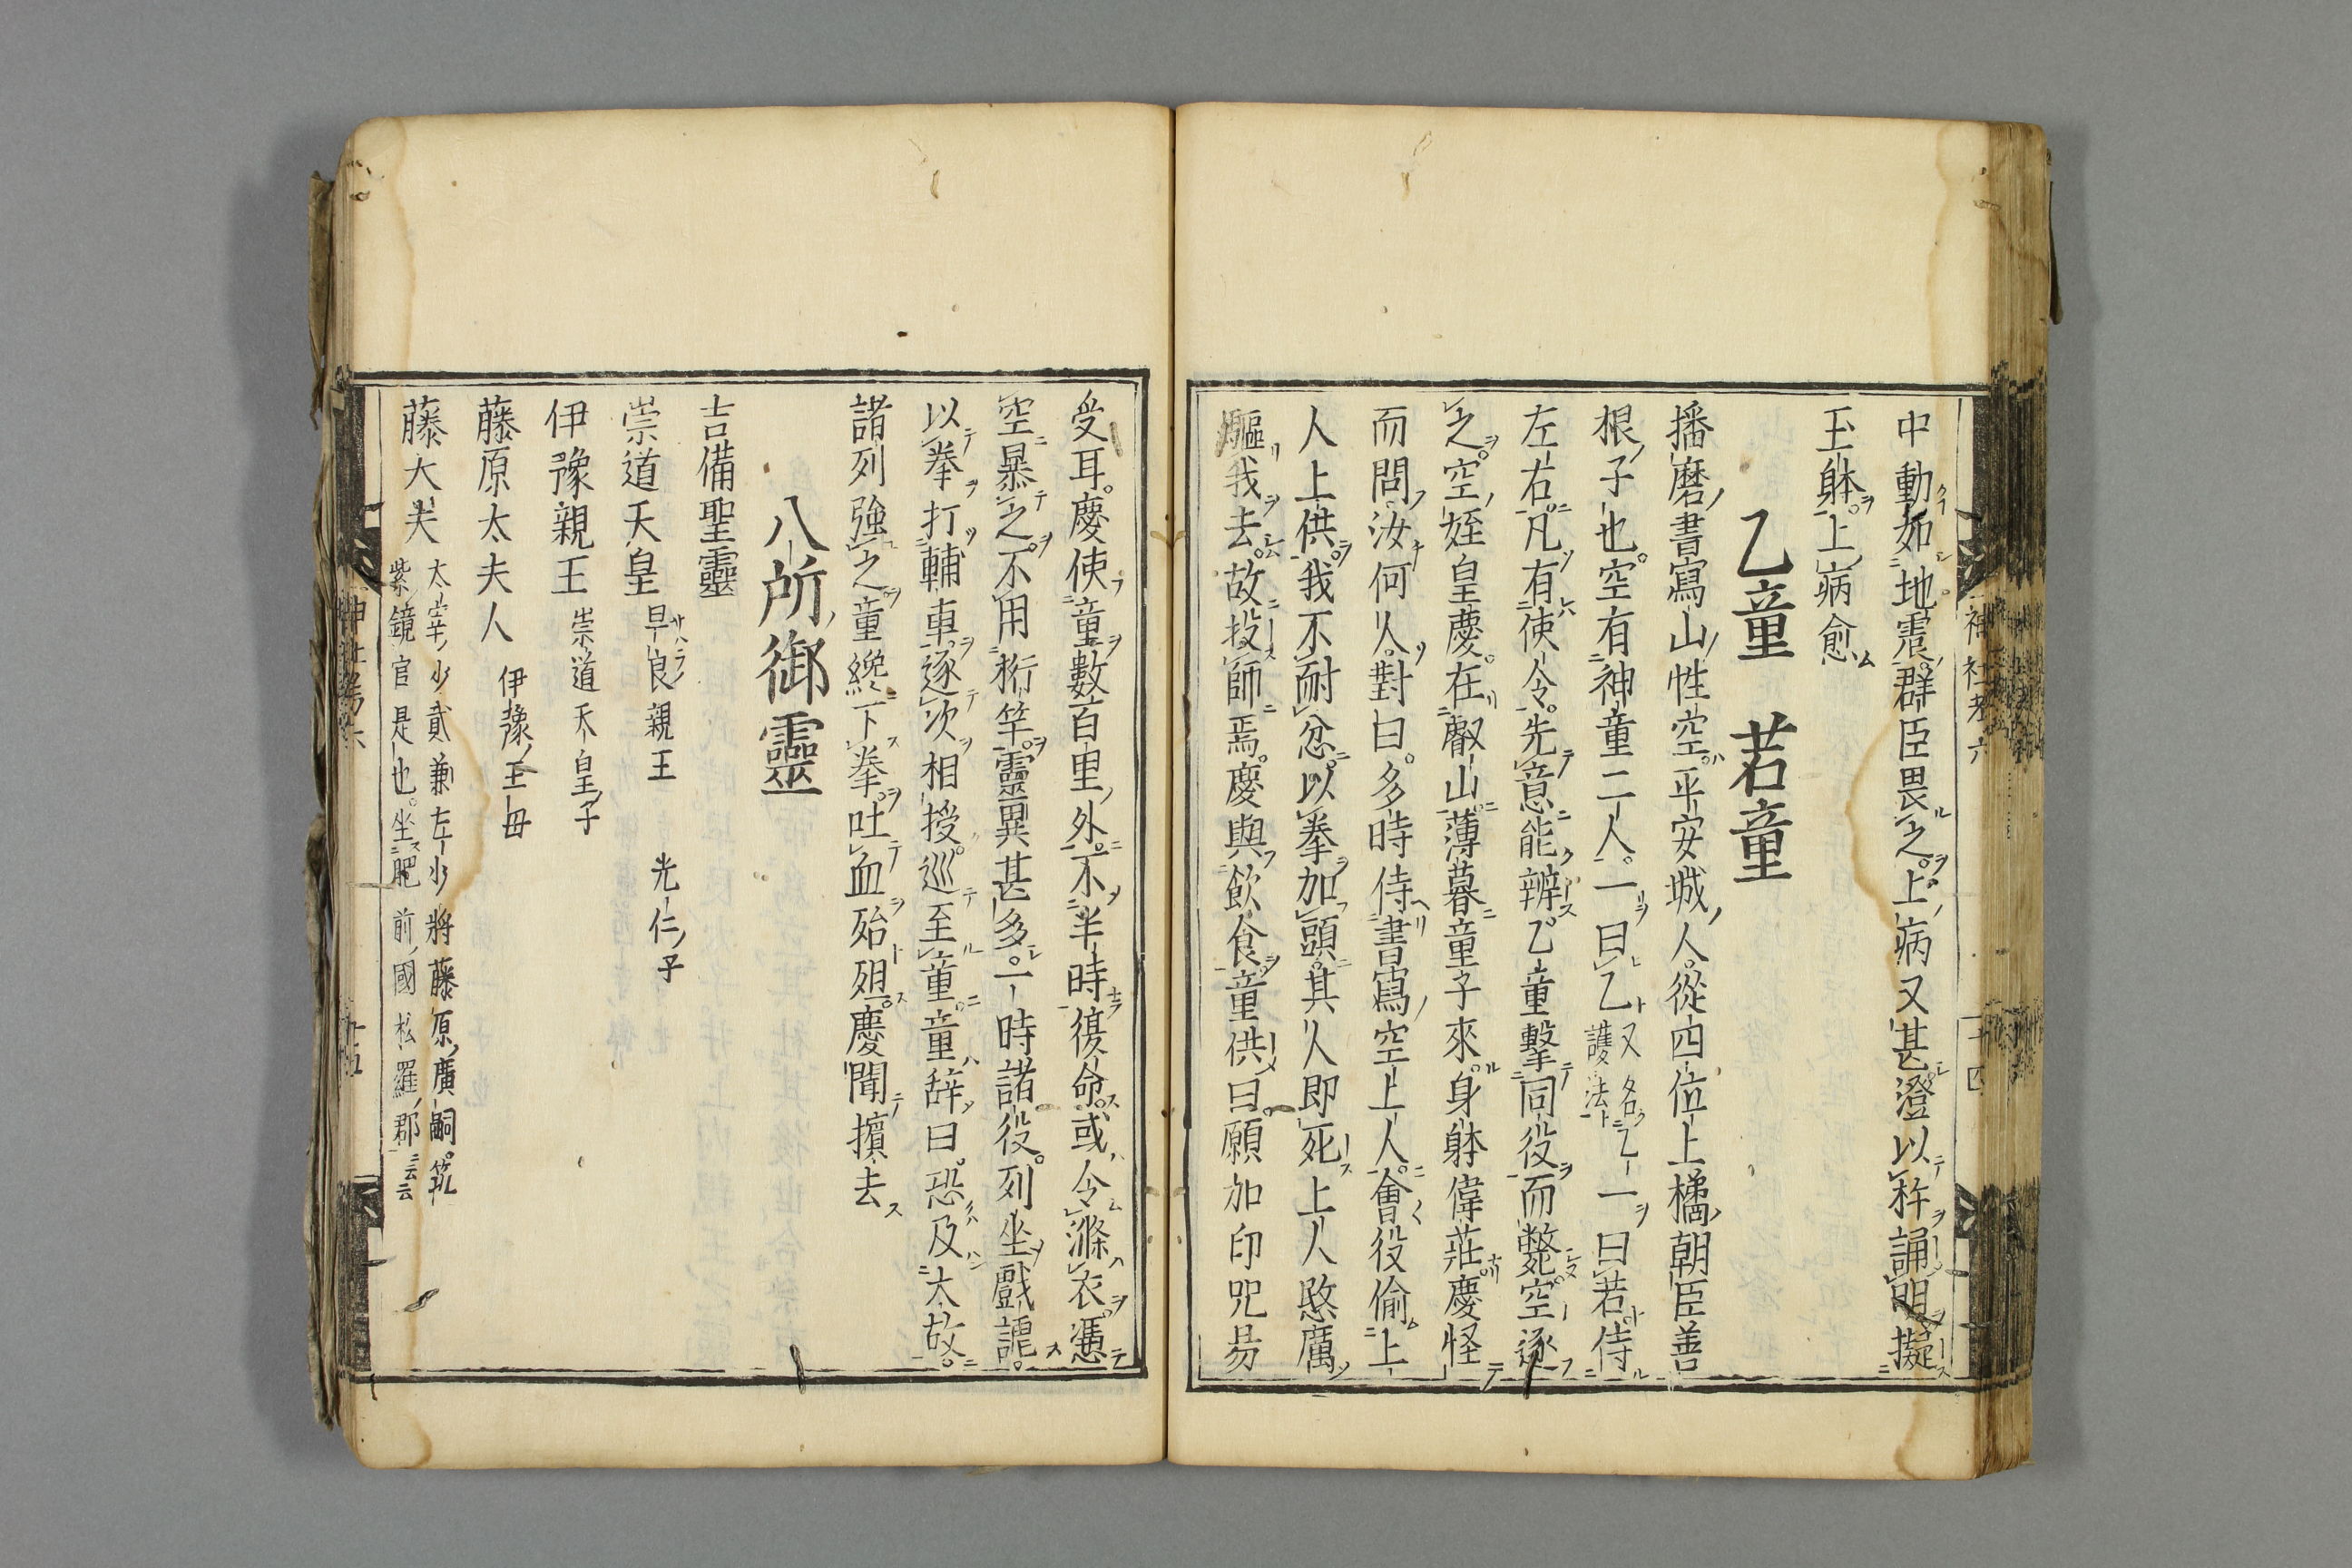 中動如地震群臣畏之上病又甚澄以杵誦明擬
玉躰上病愈
乙童 若童
播磨書寫山性空平安城人從四位上橘朝臣善
根子也空有神童二人一曰乙又名乙護法一曰若侍
左右凡有使令先意能辨乙童擊同役而斃空逐
之空姪皇慶在叡山薄暮童子來身躰偉莊慶怪
而問汝何人對曰多時侍書寫空上人會役偷上
人上供我不耐忿以拳加頭其人即死上人愍厲
驅我去故投師焉慶與飲食童供曰願加印咒易
神社考六
十四
受耳慶使童數百里外不半時復命或令滌衣憑
空暴之不用桁竿靈異甚多一時諸役列坐戲謔
以拳打輔車逐次相授巡至童童辞曰恐及太故
諸列強之童纔下拳吐血殆殂慶聞擯去
八所御靈
吉備聖靈
崇道天皇 早良親王 光仁子
伊豫親王 崇道天皇子
藤原太夫人 伊豫王母
藤大夫 太宰少貳兼左少將藤原廣嗣筑
紫鏡官是也坐肥前國松羅郡云云